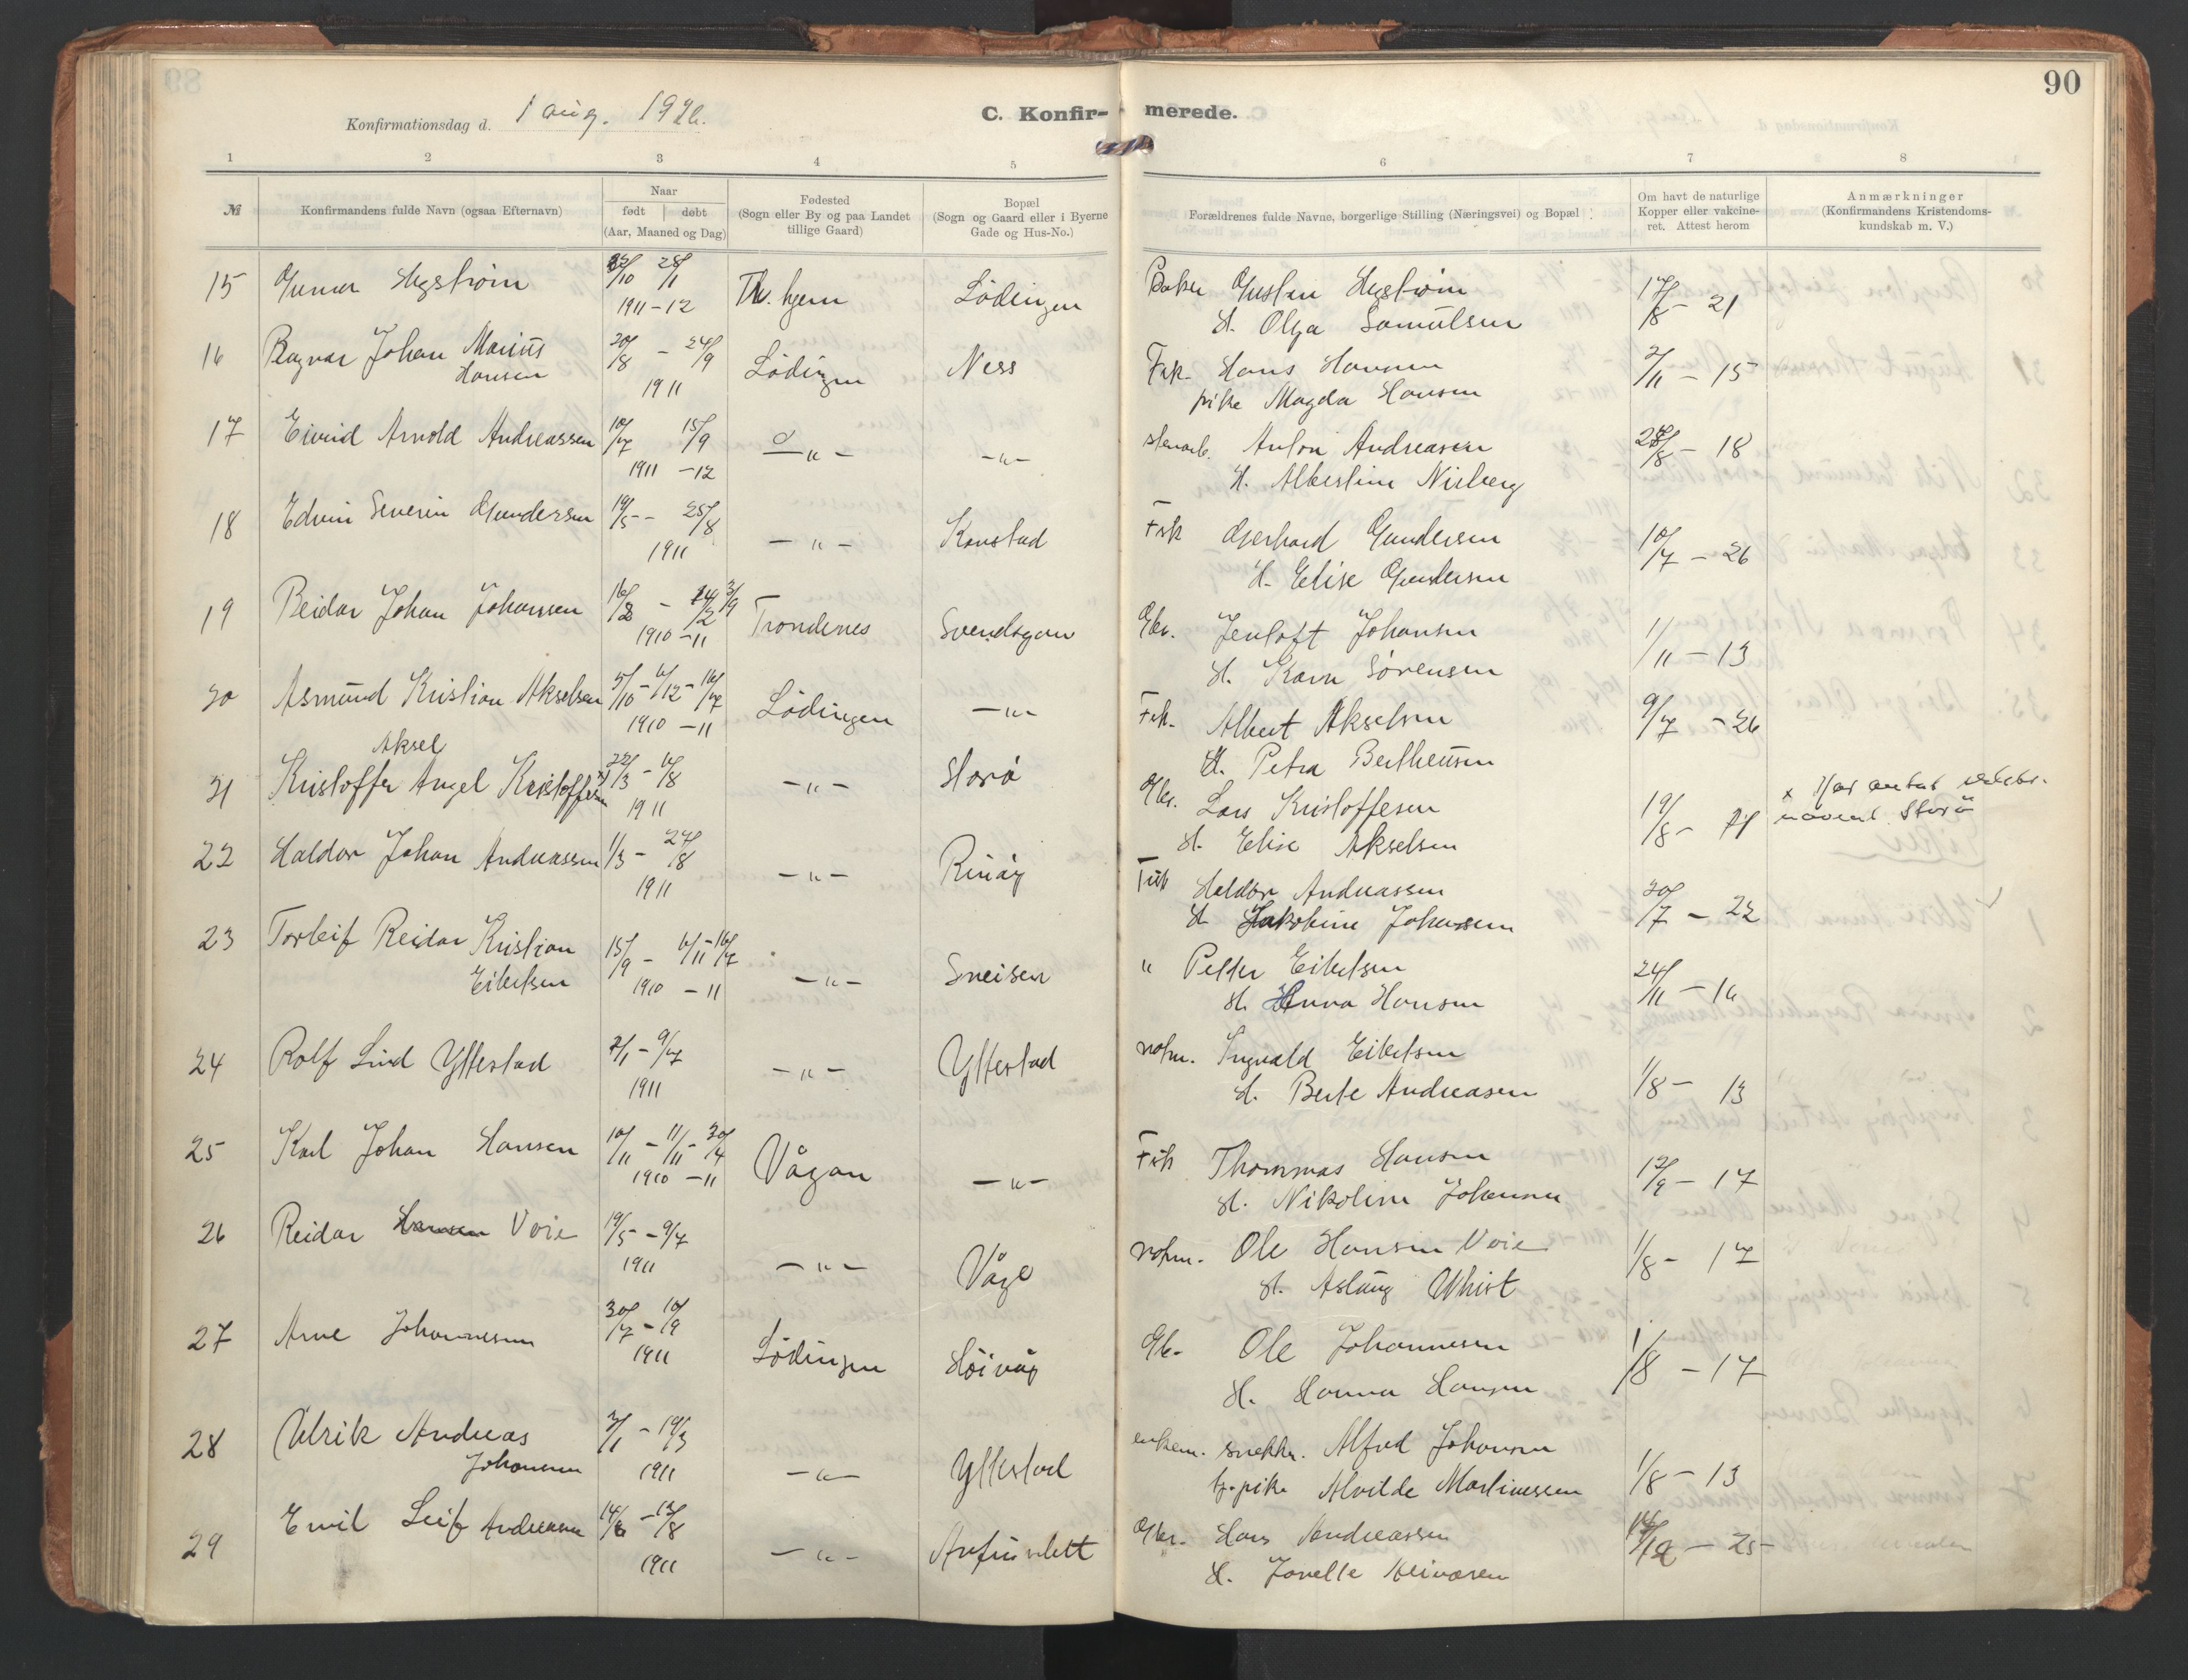 90
Konfirmationsdag d. 1 aug. 1926.
C. Konfir- merede.
1 2 3 4 5 6 7 8
№
Konfirmandens fulde Navn (ogsaa Efternavn)
Naar
født døbt
(Aar, Maaned og Dag)
Fødested
(Sogn eller By og paa Landet
tillige Gaard)
Bopæl
(Sogn og Gaard eller i Byerne
Gade og Hus-No.)
Forældrenes fulde Navne, borgerlige Stilling (Næringsvei) og Bopæl
Om havt de naturlige
Kopper eller vakcine-
ret. Attest herom
Anmærkninger
(Konfirmandens Kristendoms-
kundskab m. V.)
15 Gunnar Hegstrøm /10 28/1 Th.hjem Lødingen Baker Gustav Hegstrøm 17/8 - 21
1911-12 H. Olga Samulsen
16 Ragnar Johan Marius 20/8 - 24/9 Lødingen Ness Fisk. Hans Hansen 2/11 - 15
Hansen 1911 pike Magda Hansen
17 Eivind Arnold Andreassen 10/7 15/9 -"- -"- stenarb. Anton Andreasen 28/8 - 18
1911 -12 H. Albertine Nirberg
18 Edvin Severin Gundersen 19/5 - 25/8 -"- Kanstad Fisk Gerhard Gundersen 10/7 - 26
1911 H. Elise Gundersen
19 Reidar Johan Johansen 16/8 - 3/9 Trondenes Svendsgam Gbr. Jenloft Johansen 1/11 - 13
1910 -11 H. Karn Sørensen
20 Asmund Kristian Akselsen 5/10 - 6/12 - 16/7 Lødingen -"- Fisk. Albert Akselsen 9/7 - 26
1910 -11 H. Petra Bertheusen
Aksel
21 Kristoffer Angel Kristoffersen x) 22/3 - 6/8 -"- Storø Gbr. Lars Kristoffersen 19/8 - 21 x Har antat
1911 H. Elise Akselsen navnet Storø
22 Haldor Johan Andreassen 1/3 - 27/8 -"- Rinøy Fisk Haldor Andreassen 20/7 - 22
1911 H Jakobine Johansen
23 Torleif Reidar Kristian 15/9 - 6/11 - 16/7 -"- Sneisen " Petter Eilertsen 24/11 - 16
Eilertsen 1910 - 11 H. Anna Hansen
24 Rolf Lind Yttestad 2/1 - 9/7 -"- Yttestad notm. Ingvald Eilertsen 1/8 - 13
1911 H. Berte Andreasen
25 Karl Johan Hansen 10/11 - 11/11 - 30/4 Vågan -"- Fisk Thommas Hansen 12/9 - 17
1910 -11 H. Nikoline Johansen
26 Reidar Hansen Voie 19/5 - 9/7 -"- Våge notm. Ole Hansen Voie 1/8 - 17
1911 H. Aslaug Whist
27 Arne Johannesen 30/7 - 10/9 Lødingen Høivåg Gbr. Ole Johannesen 1/8 - 17
1911 H. Hanna Hansen
28 Ulrik Andreas 3/1 - 19/3 -"- Yttestad enkem. snekker. Alfred Johansen 1/8 - 13
Johansen 1911 tj.pike Alvilde Martinussen
29 Emil Leif Andreasen 14/6 - 13/8 -"- Gbr. Hans Andreassen 16/12 - 25
1911 H. Jonette